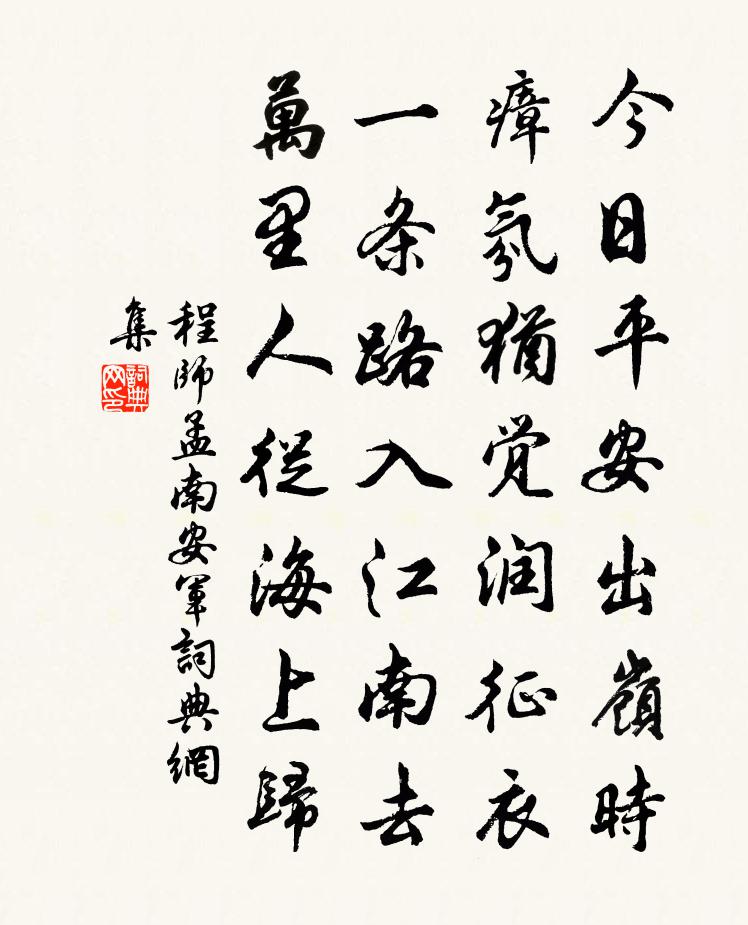 今日平安出嶺時
瘴氛猶觉润征衣
一条路入江南去
萬里人從海上歸
程師孟南安軍詞典網
集
詞典网印